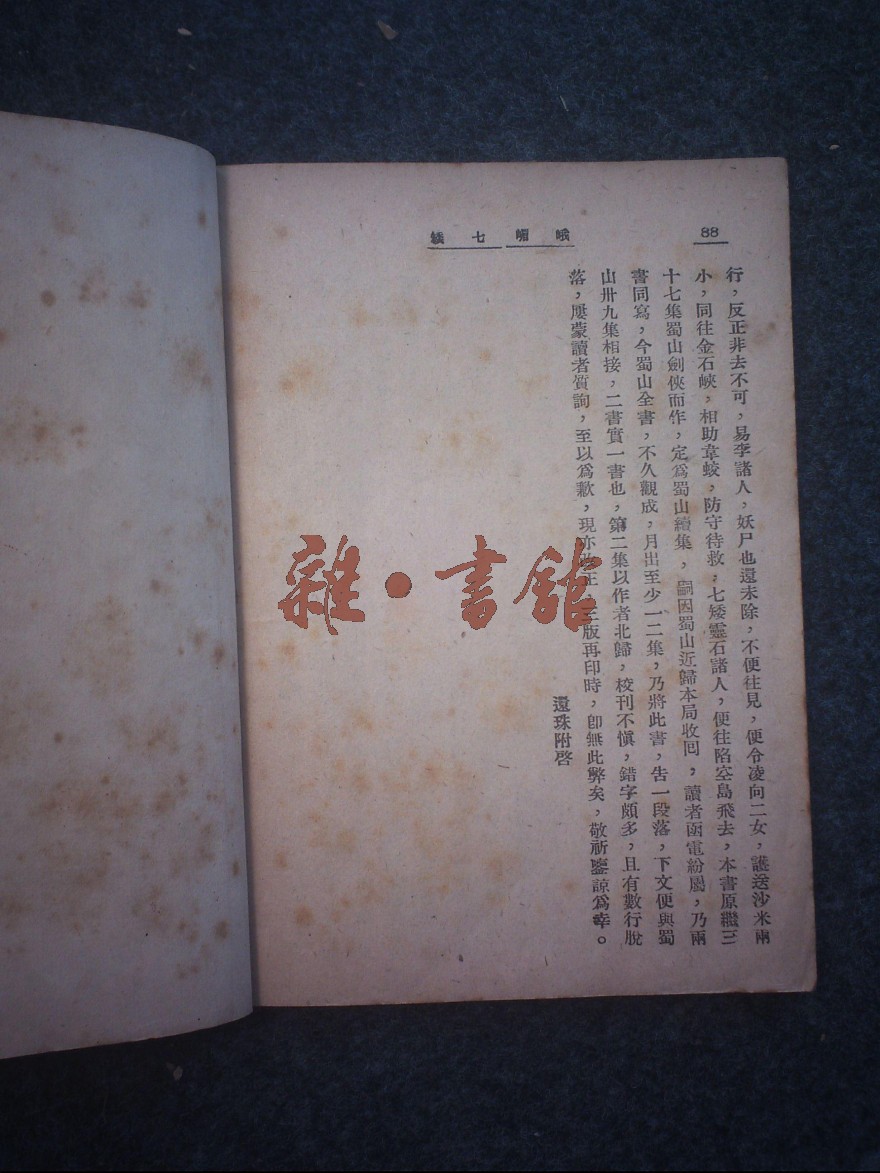 88
峨嵋七矮
行，反正非去不可，易李諸人，妖尸也還未除，不便往見，便令凌向二女，護送沙米兩
小，同往金石峽，相助韋蛟，防守待救；七矮靈石諸人，便往陷空島飛去，本書原繼三
十七集蜀山劍俠而作，定爲蜀山續集，嗣因蜀山近歸本局收回，讀者函電紛屬，乃兩
書同寫，今蜀山全書，不久觀成，月出至少一二集，乃將此書，告一段落，下文便與蜀
山卅九集相接，二書實一書也，第二集以作者北歸，校刊不愼，錯字頗多，且有數行脫
落，屢蒙讀者質詢，至以爲歉，現亦改正，三版再印時，卽無此弊矣，敬祈鑒諒爲幸。
還珠附啓
雜·書館